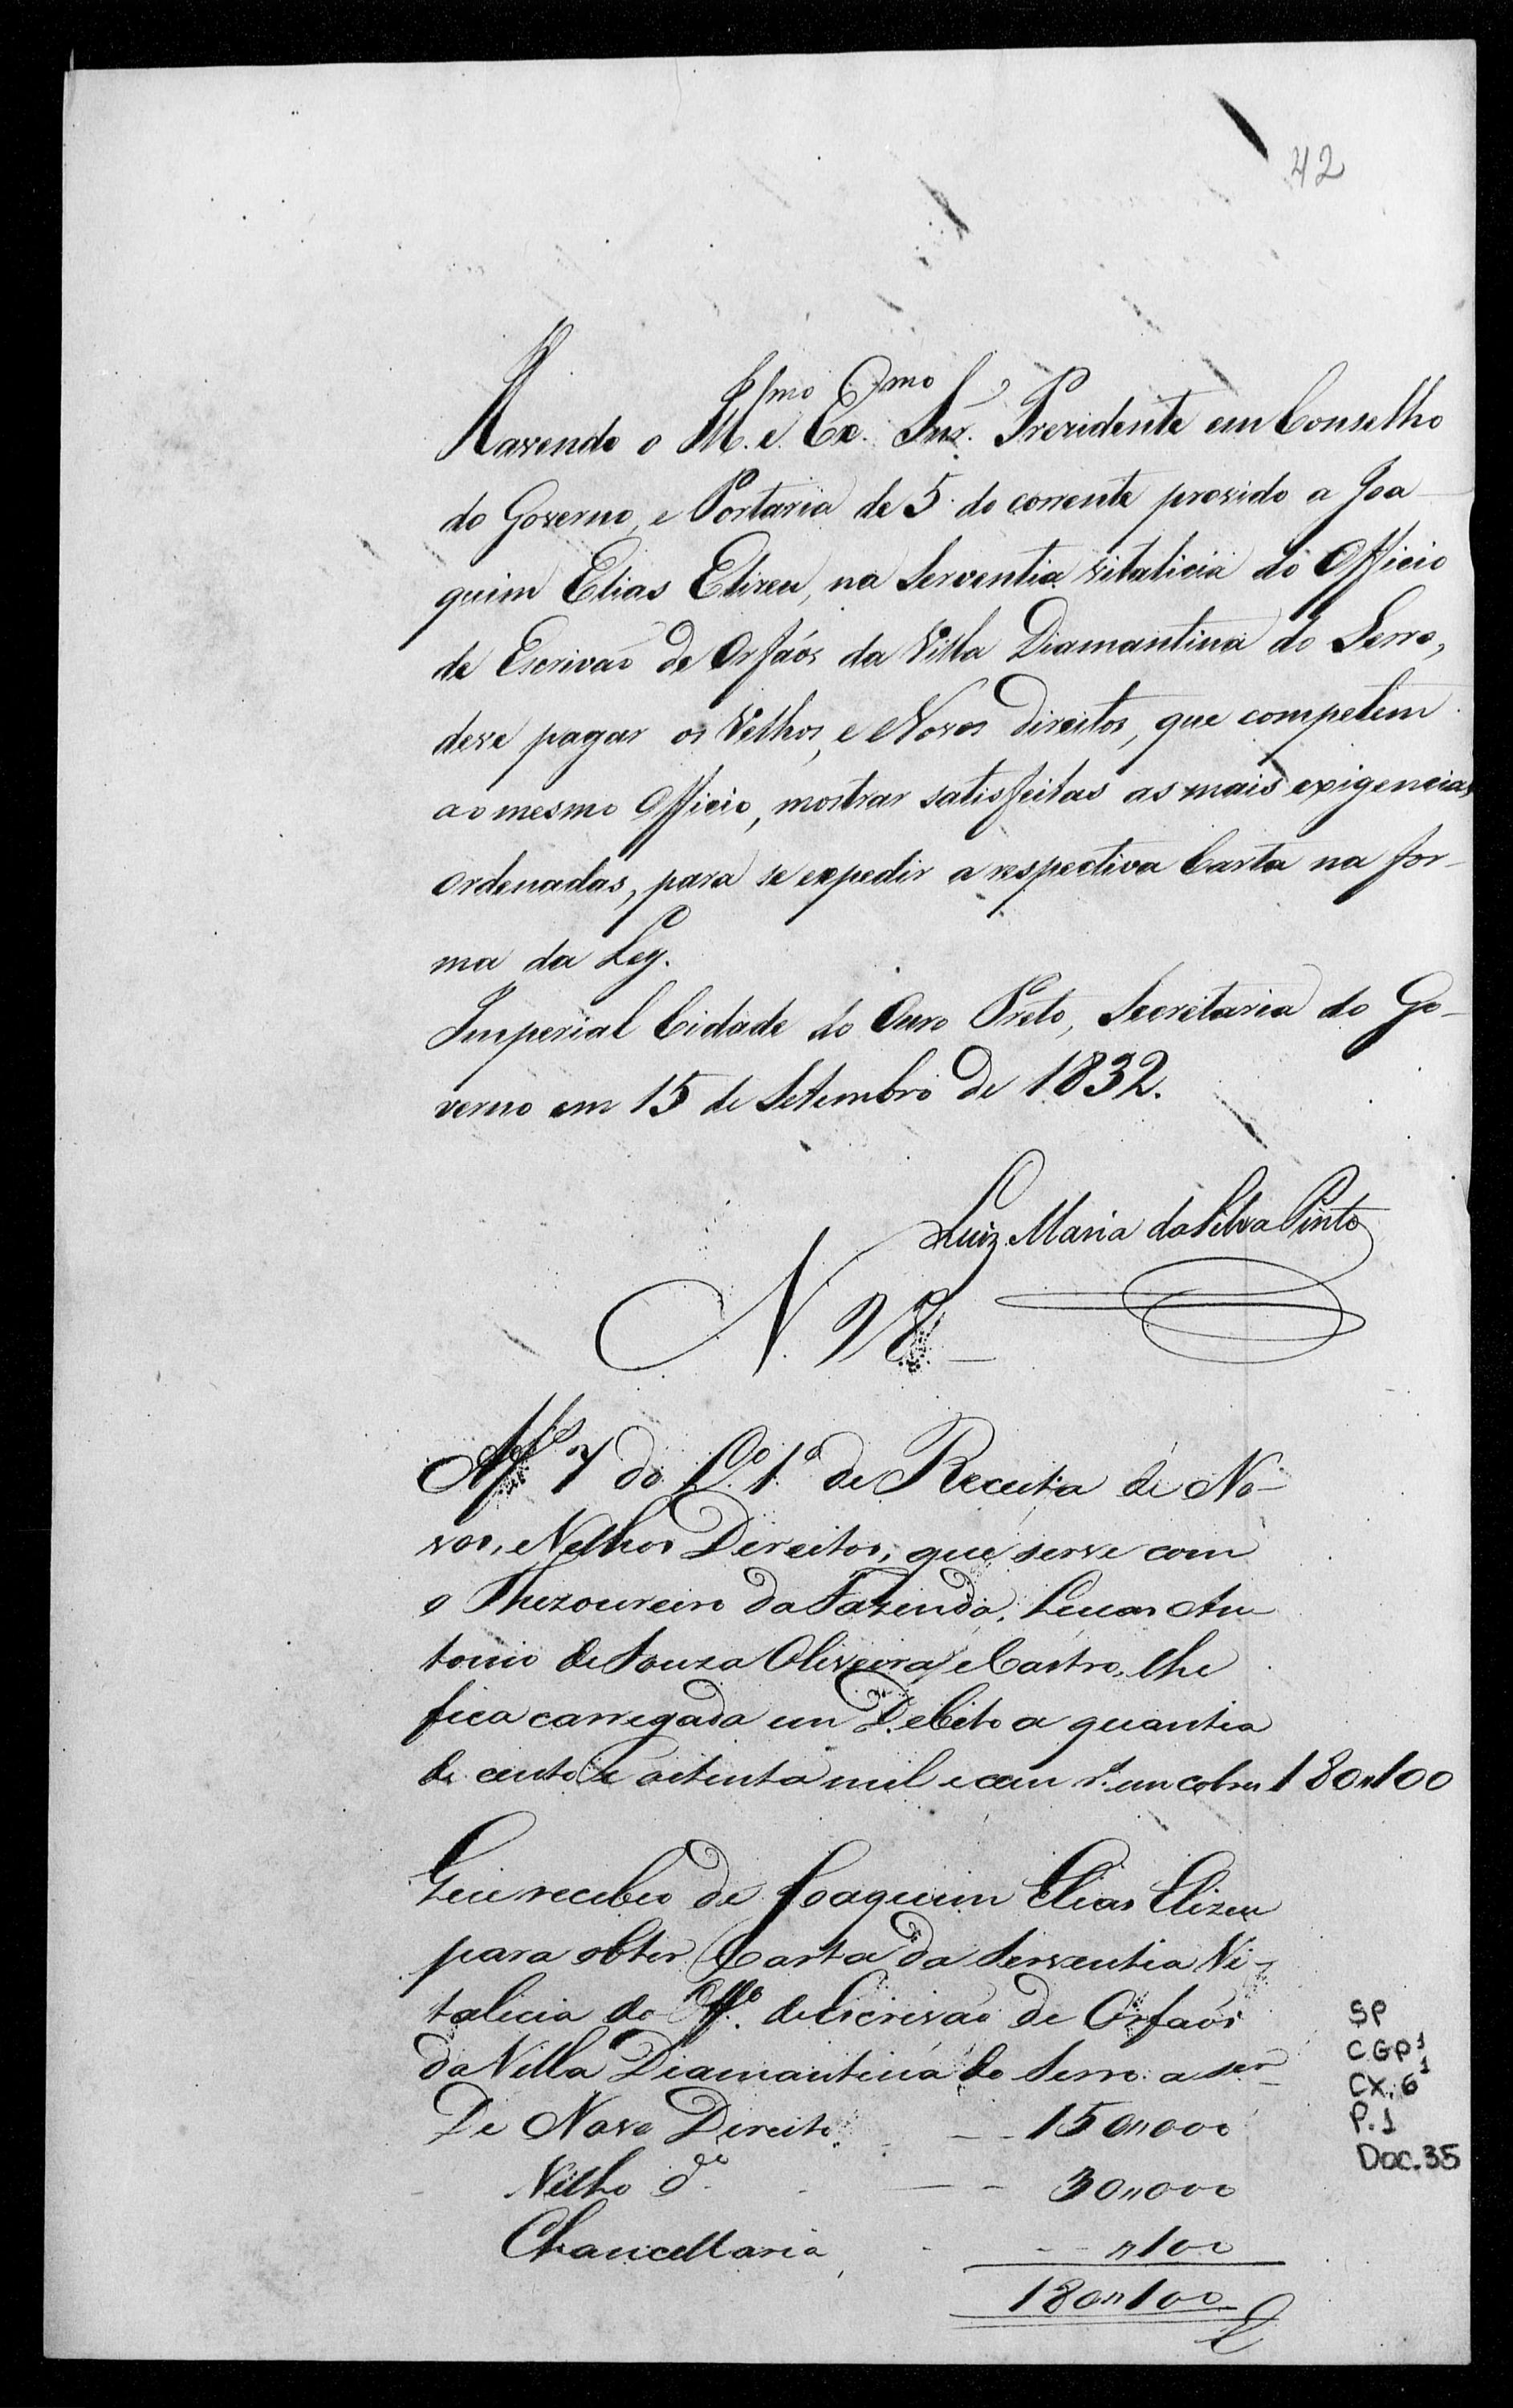 42
Havendo o Ill.mo e Ex.mo Snr. Prezidente em Conselho
do Governo, e Portaria de 5 do corrente provido a Joa-
quim Elias Elizeu, na Serventia vitalicia do Officio
de Escrivaõ de Orfãos da Villa Diamantina do Serro,
deve pagar os Velhos, e Novos direitos, que competem
ao mesmo Officio, mostrar satisfeitas as mais exigencias
ordenadas, para se expedir a respectiva Carta na for-
ma da Ley.
Imperial Cidade do Ouro Preto, Secretaria do Go-
verno em 15 de Setembro de 1832.
Luiz Maria da Silva Pinto
N.
Af.s 7 do L.o 1.o de Receita de No-
vos, e Velhos Direitos, que serve com
o Thezoureiro da Fazenda, Lucas An-
tonio de Souza Oliveira e Castro, lhe
fica carregada em Debito a quantia
de cento e oitenta mil e cem r.s em cobre 180"100
Que recebeo de Joaquim Elias Elizeu
para obter Carta da Serventia Vi-
talicia do Off.o de Escrivaõ de Orfaõs
da Villa Diamantina do Serro a ser
De Novo Direito 150"000
Velho d.o 30"000
Chancellaria "100
180"100
SP
CGP1
CX. 6
P.1
Doc.35